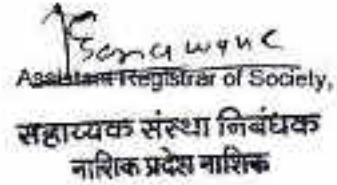 Sonawane
Assistant Registrar of Society,
सहाय्यक संस्था निबंधक
नाशिक प्रदेश नाशिक